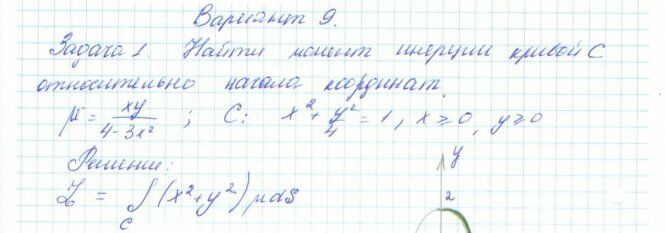 Вариант 9.
Задача 1. Найти момент инерции кривой C
относительно начала координат.
μ = xy / (4-3x²) ; C: x² + y²/4 = 1, x ≥ 0, y ≥ 0
Решение:
y
I = ∫_C (x²+y²) μ dS
2